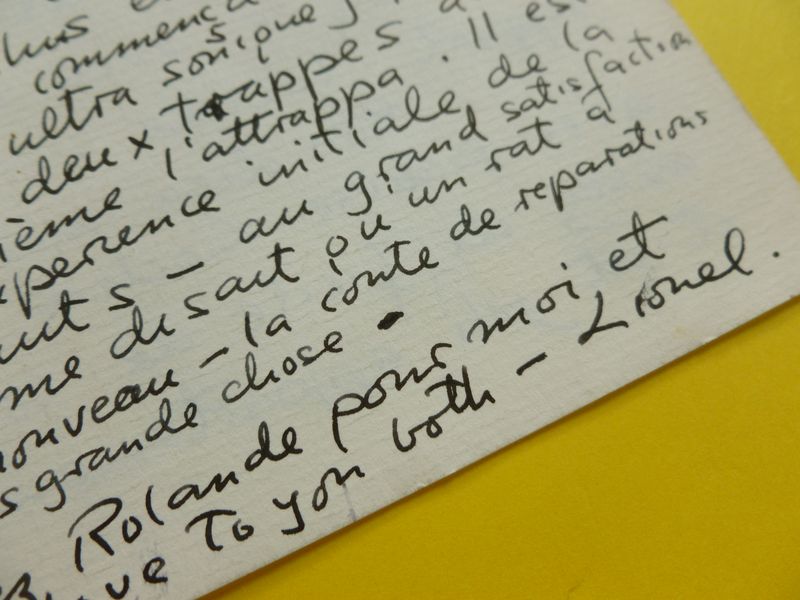 commença
ultra sonique
deux trappes a
ième l'attrappa. Il es
xperience initiale, de la
uts - au grand satisfaction
me disait qu'un rat a
nouveau - la conte de reparations
s grande chose.
Rolande pour moi et
ve To you both - Lionel.